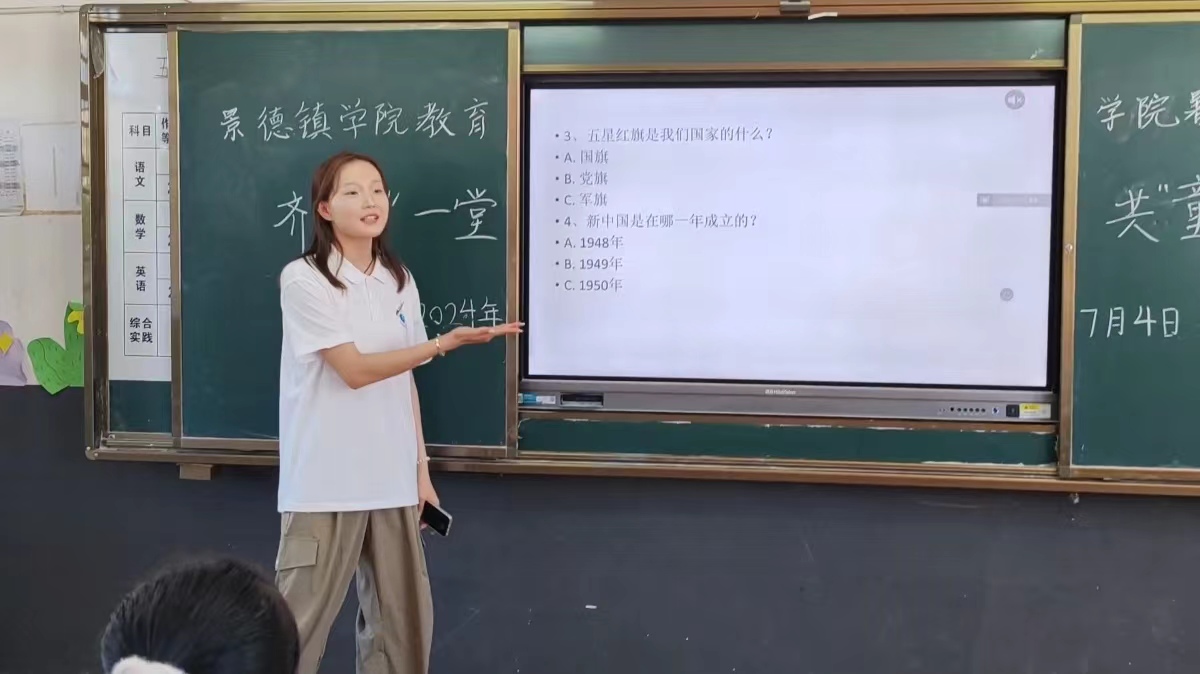 五
科目
作
等
语文
数学
英语
综合
实践
景德镇学院教育
学院暑
齐
"一堂
共"童
2024年
7月4日
• 3、五星红旗是我们国家的什么？
• A. 国旗
• B. 党旗
• C. 军旗
• 4、新中国是在哪一年成立的？
• A. 1948年
• B. 1949年
• C. 1950年